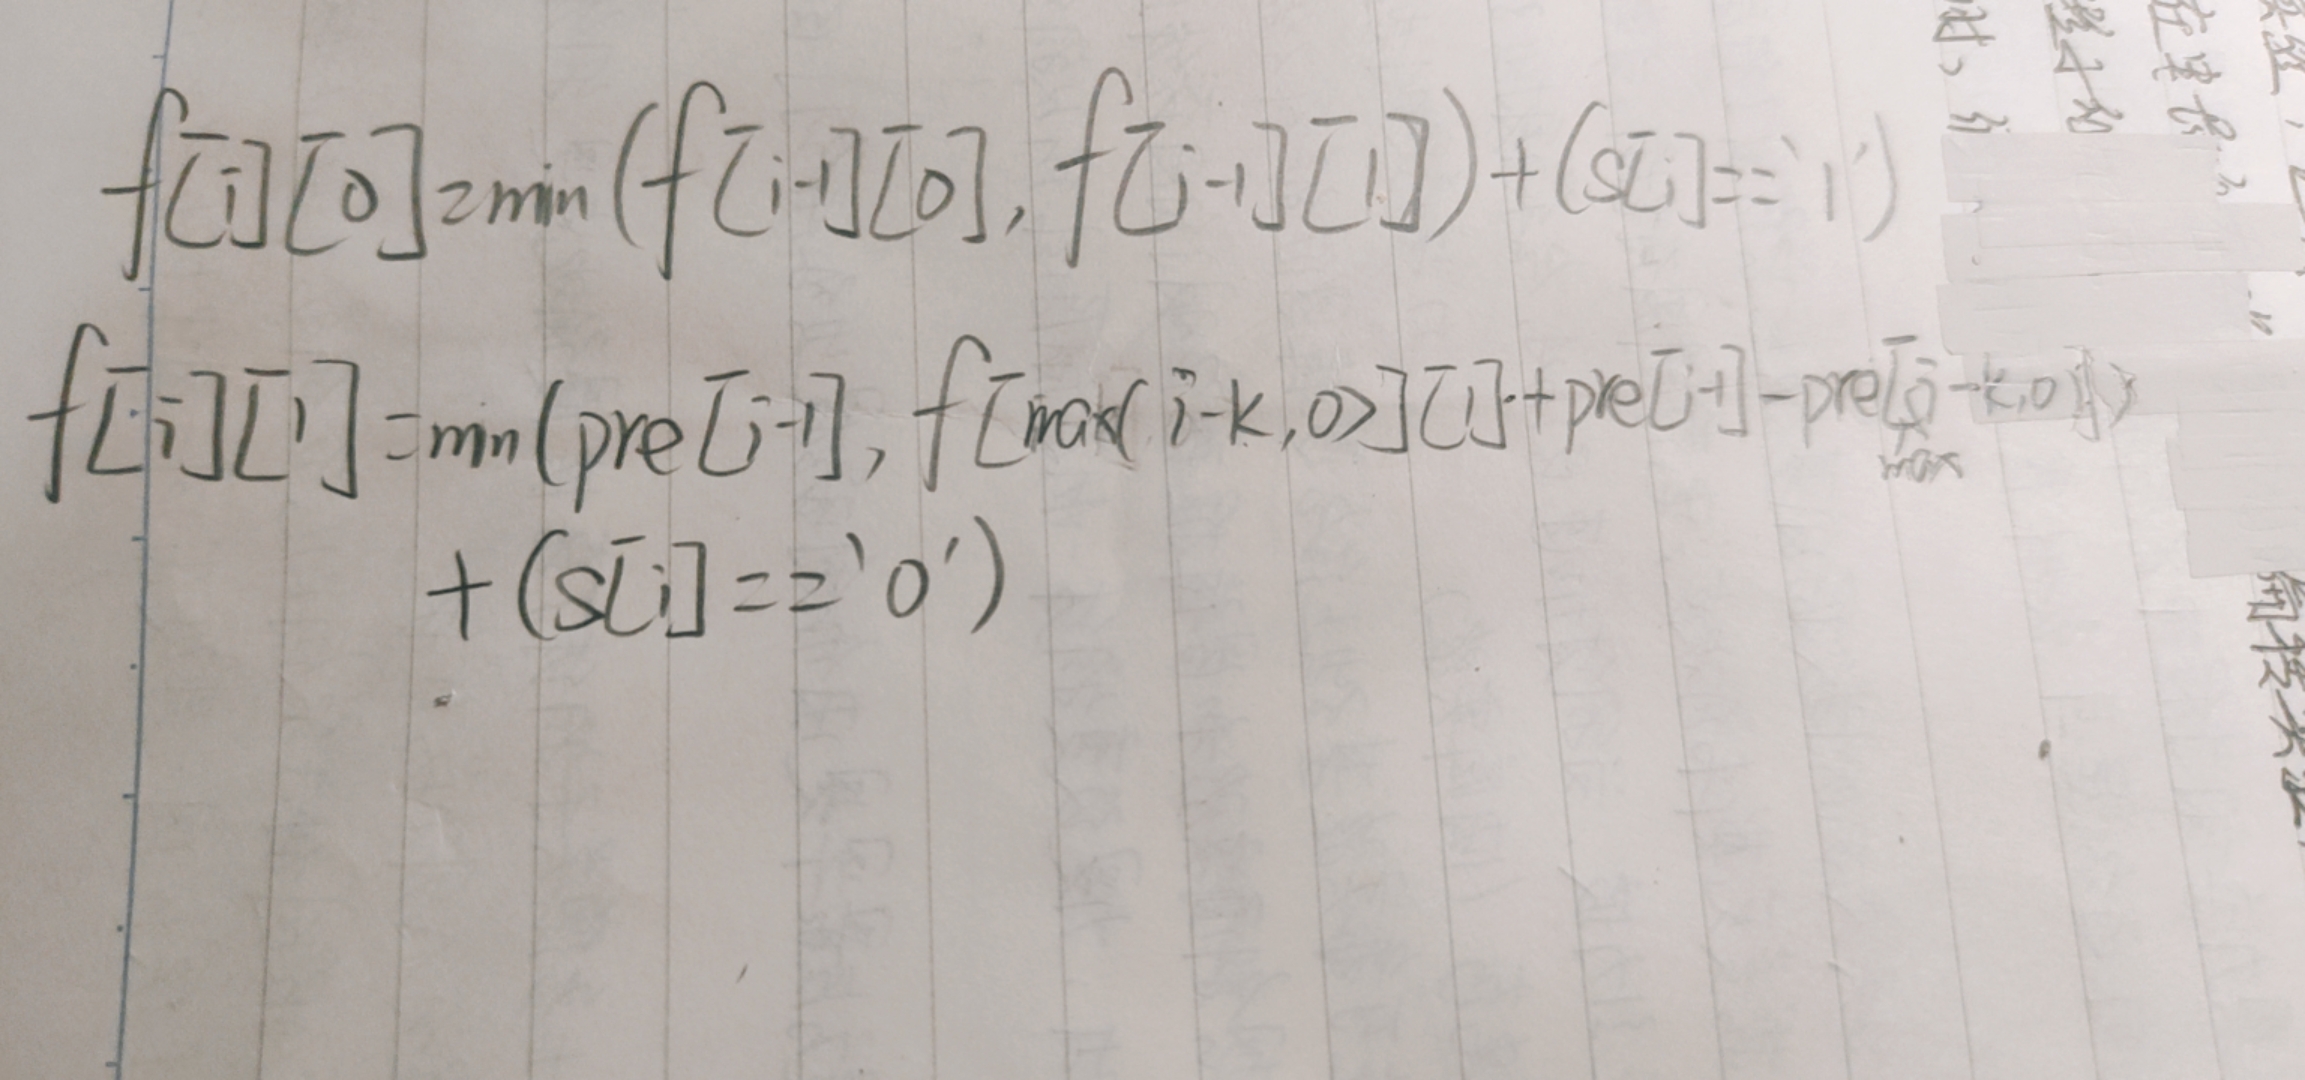 f[i][0]=min(f[i-1][0], f[i-1][1])+(s[i]=='1')
f[i][1]=min(pre[i-1], f[max(i-k,0)][1]+pre[i-1]-pre[max(i-k,0)])
+(s[i]=='0')